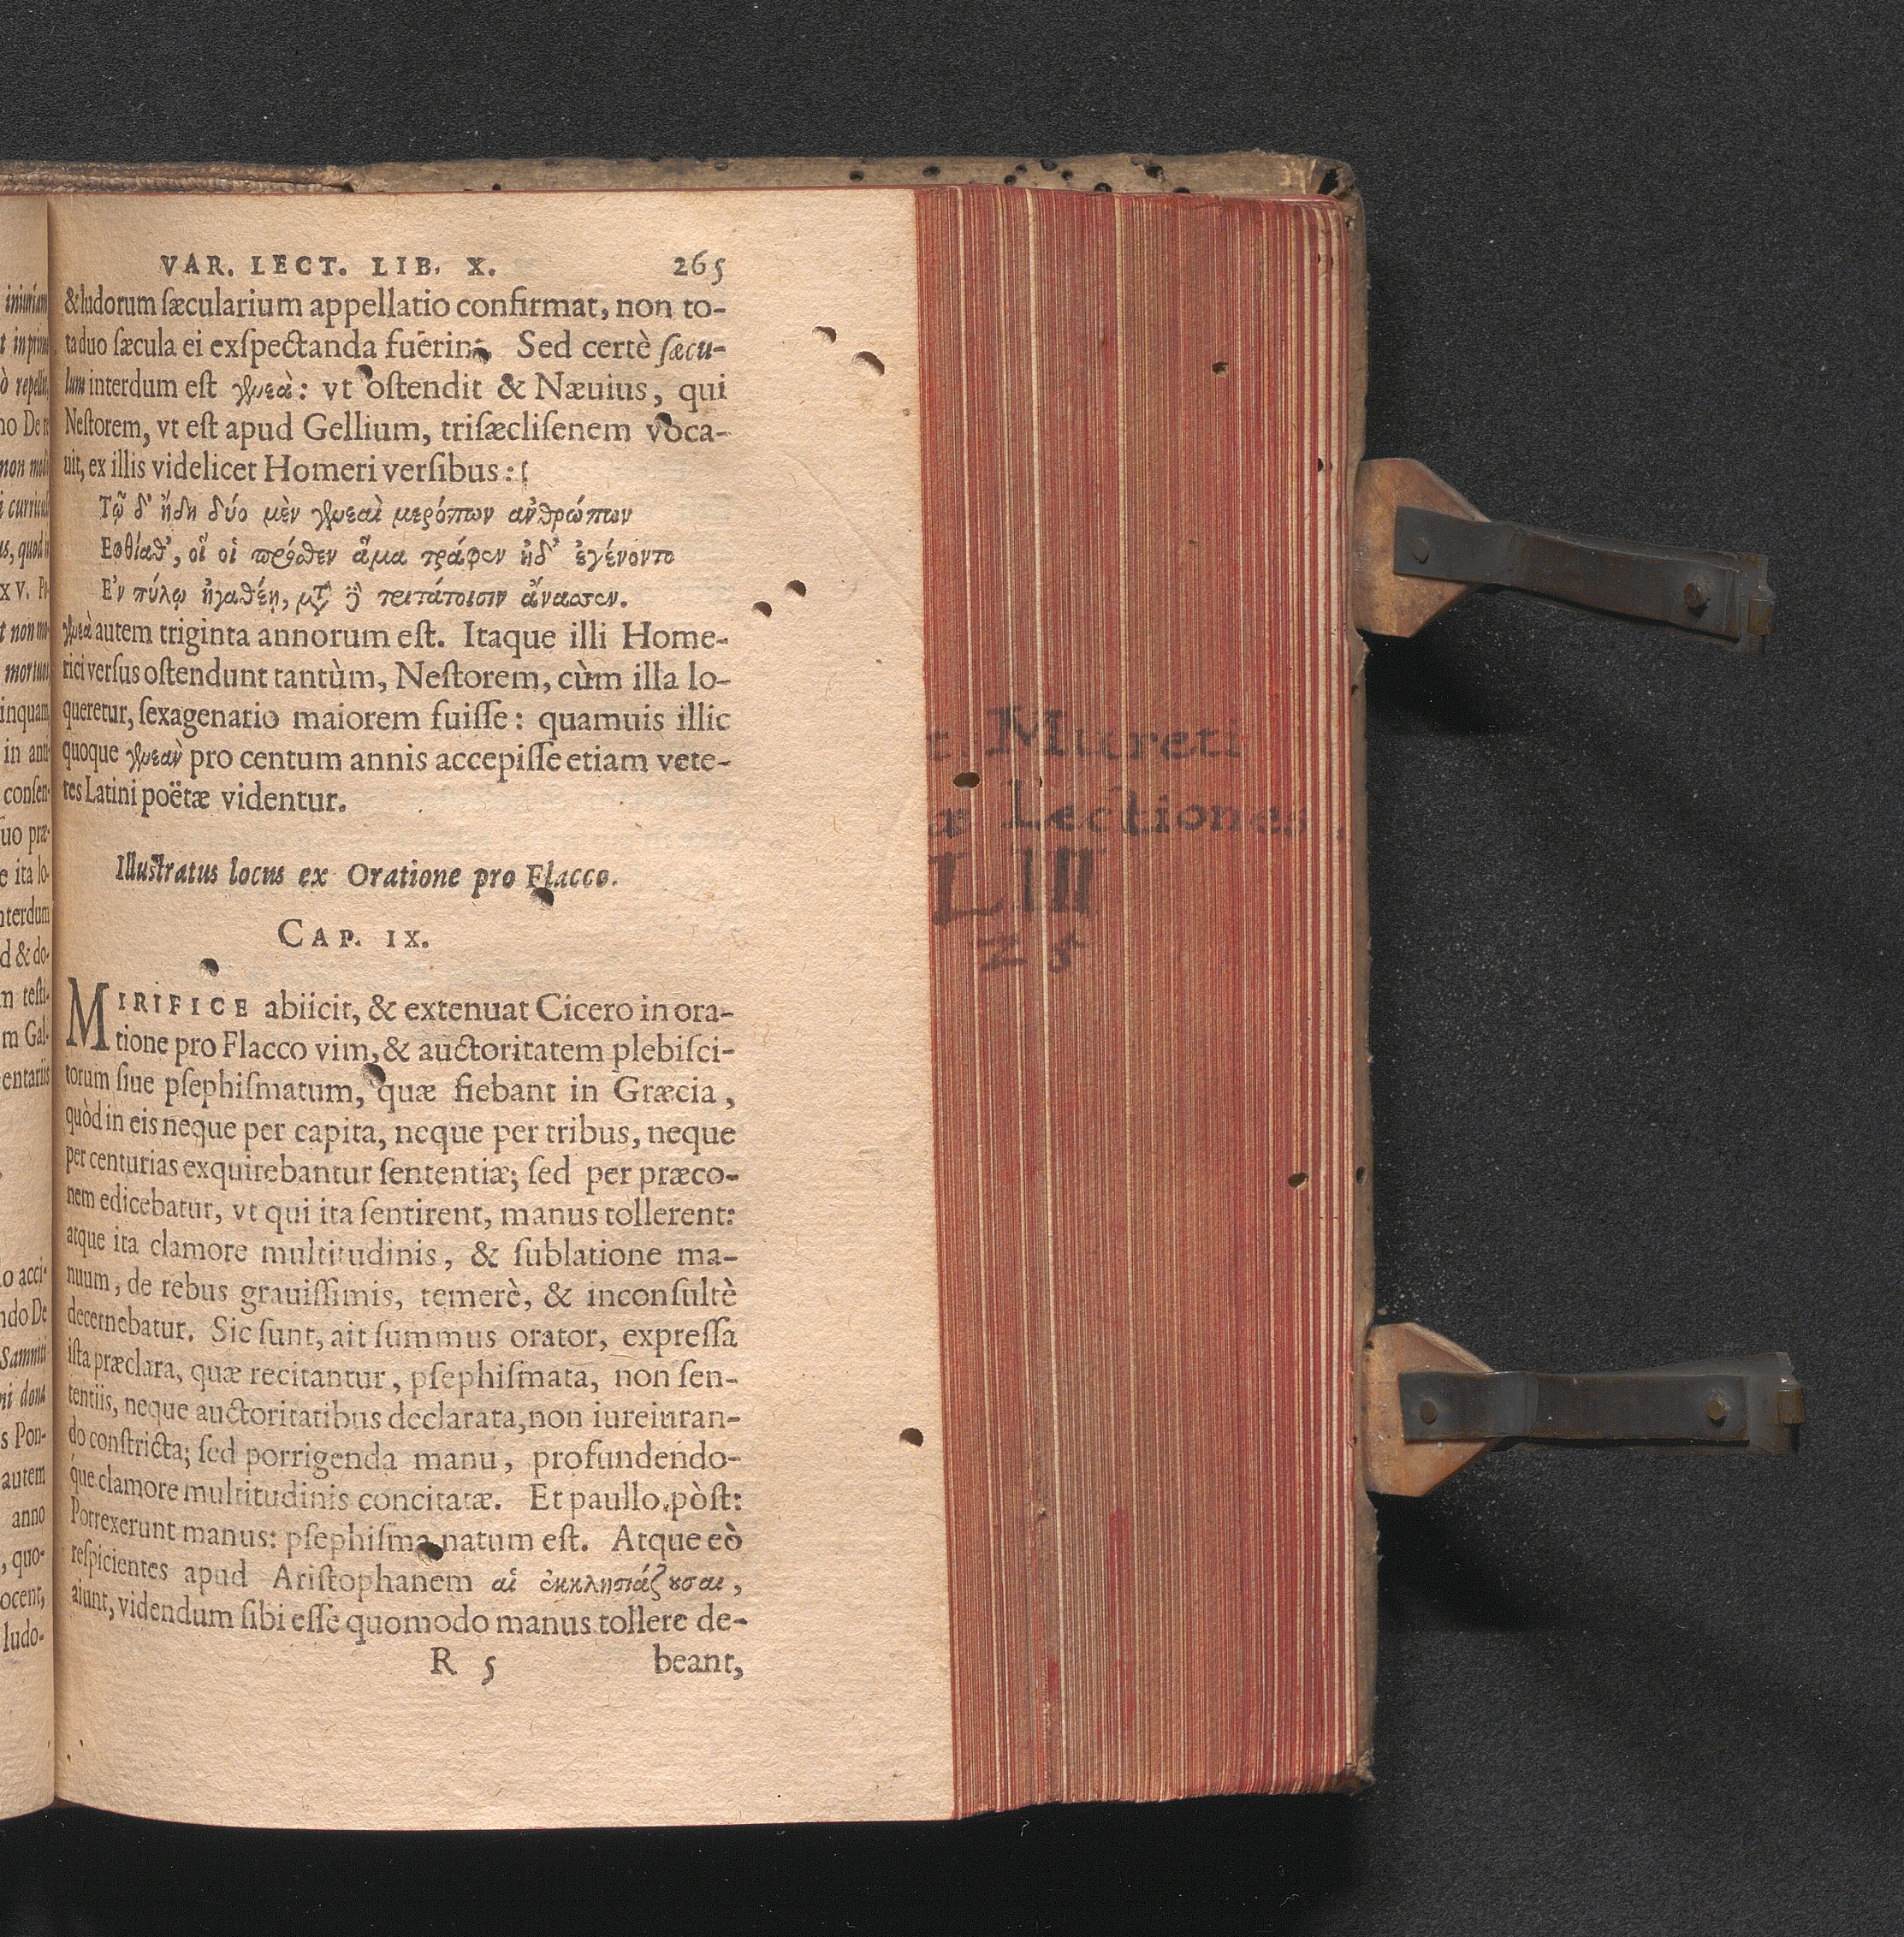 VAR. LECT. LIB. X. 265
&ludorum ſæcularium appellatio confirmat, non to-
ta duo ſæcula ei exſpectanda fuerint. Sed certè ſæcu-
lum interdum eſt γενεὰ: vt oſtendit & Næuius, qui
Neſtorem, vt eſt apud Gellium, triſæcliſenem voca-
uit, ex illis videlicet Homeri verſibus:
Τῷ δ' ἤδη δύο μὲν γενεαὶ μερόπων ἀνθρώπων
Εφθίαθ', οἵ οἱ πρόσθεν ἅμα τράφεν ἠδ' ἐγένοντο
Εν πύλῳ ἠγαθέῃ, μτ δὲ τριτάτοισιν ἄνασσεν.
γενεὰ autem triginta annorum eſt. Itaque illi Home-
rici verſus oſtendunt tantùm, Neſtorem, cùm illa lo-
queretur, ſexagenario maiorem fuiſſe: quamuis illic
quoque γενεὰν pro centum annis accepiſſe etiam vete-
res Latini poëtæ videntur.
Illuſtratus locus ex Oratione pro Flacco.
CAP. IX.
MIRIFICE abiicit, & extenuat Cicero in ora-
tione pro Flacco vim, & auctoritatem plebiſci-
torum ſiue pſephiſmatum, quæ fiebant in Græcia,
quòd in eis neque per capita, neque per tribus, neque
per centurias exquirebantur ſententiæ; ſed per præco-
nem edicebatur, vt qui ita ſentirent, manus tollerent:
atque ita clamore multitudinis, & ſublatione ma-
nuum, de rebus grauiſſimis, temerè, & inconſultè
decernebatur. Sic ſunt, ait ſummus orator, expreſſa
iſta præclara, quæ recitantur, pſephiſmata, non ſen-
tentiis, neque auctoritatibus declarata, non iureiuran-
do conſtricta; ſed porrigenda manu, profundendo-
que clamore multitudinis concitatæ. Et paullo pòſt:
Porrexerunt manus: pſephiſma natum eſt. Atque eò
reſpicientes apud Ariſtophanem αἱ ἐκκλησιάζουσαι,
aiunt, videndum ſibi eſſe quomodo manus tollere de-
R 5 beant,
Mureti
Lectiones
LIII
25